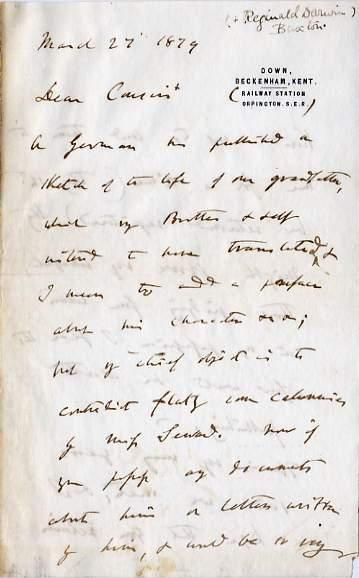 (+ Reginald Darwin)
Buxton
March 27 1879
DOWN,
BECKENHAM, KENT.
RAILWAY STATION
ORPINGTON. S.E.R.
Dear Cousin
( )
A German has published a
sketch of the life of our grandfather,
which my Brother & self
intend to have translated, &
I mean to add a preface
about his character &c &c;
but my chief object is to
contradict flatly some calumnies
by Miss Seward. Now if
you possess any documents
about him or letters written
by him, & would be so very